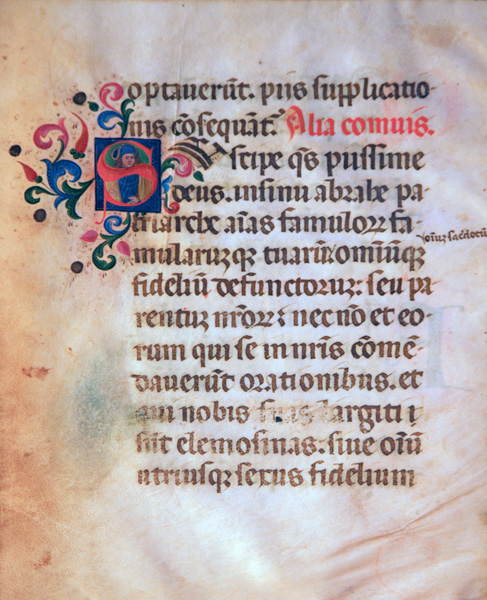 optauerūt. piis supplicatio-
nis cōsequāt᷑. Alia comuis.
Suscipe qs̄ piissime
deus. in sinu abrahe pa-
triarche aīas famulorꝝ fa-
mularuzqꝫ tuarū: omiūqꝫ
fidelium defunctoruz: seu pa
rentuz nr̄orꝝ: nec nō et eo-
rum qui se in nr̄is cōmē-
dauerūt orationibus. et
qui nobis suas largiti i
sūt elemosinas: siue oīū
utriusqꝫ sexus fidelium